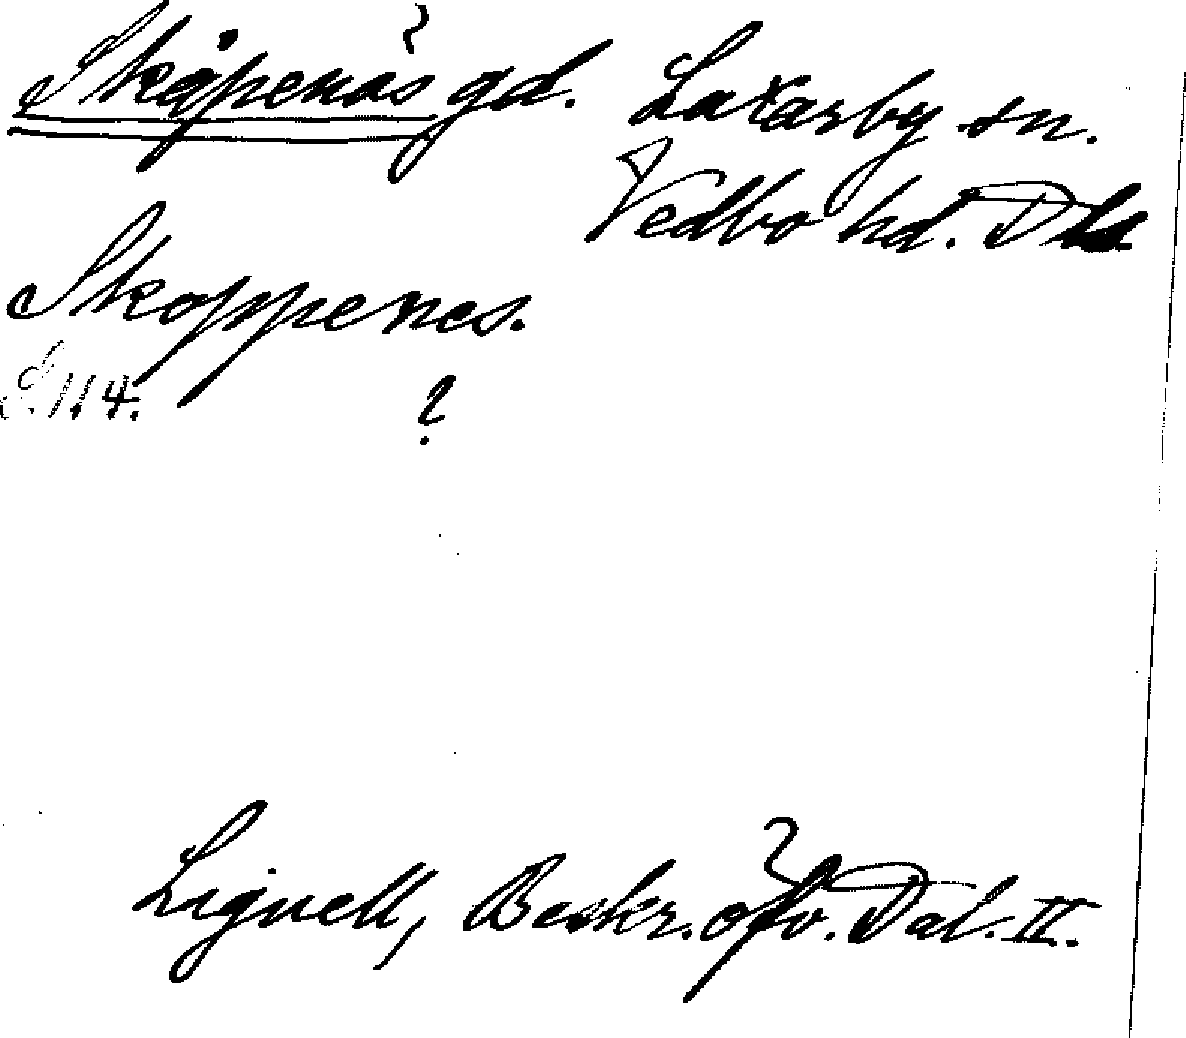 Skåpenäs gd. Laxarby sn.
Vedbo hd. Dls
Skoppenes.
S. 114.
?
Lignell, Beskr. öfv. Dal. II.